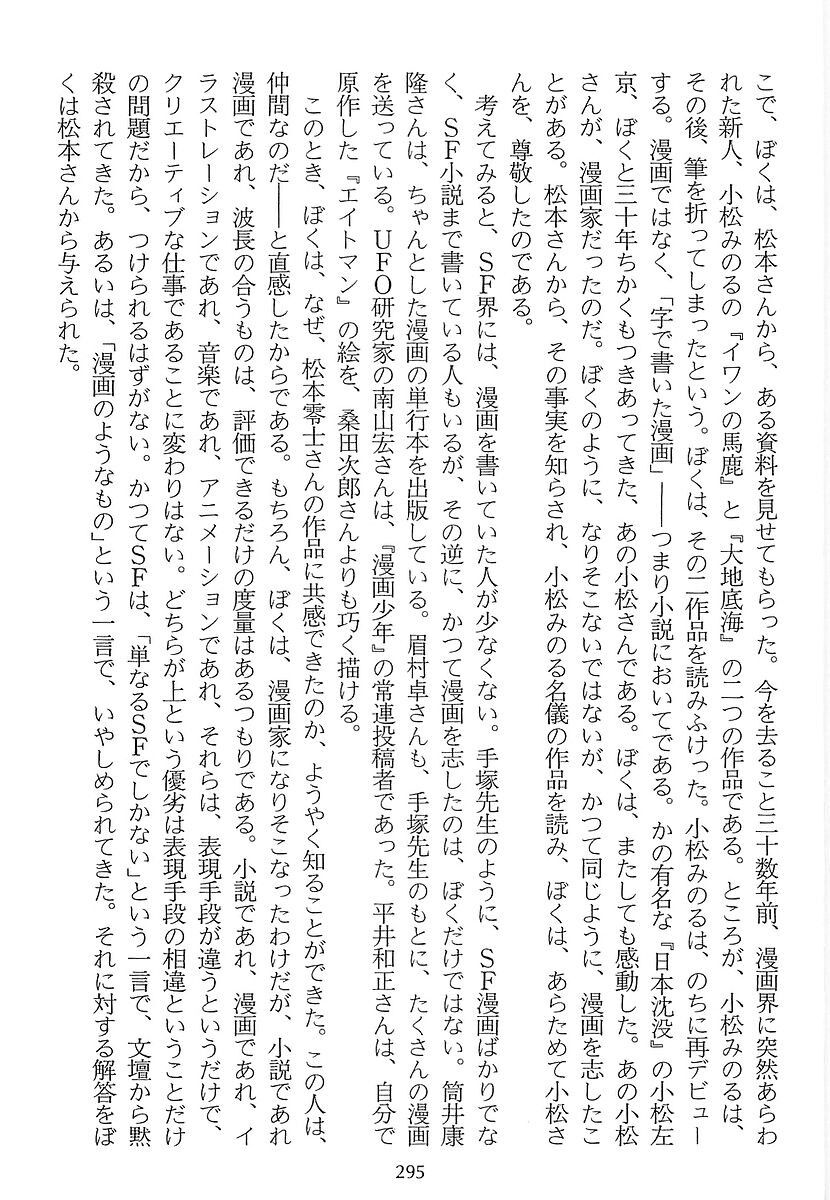 こで、ぼくは、松本さんから、ある資料を見せてもらった。今を去ること三十数年前、漫画界に突然あらわ
れた新人、小松みのるの『イワンの馬鹿』と『大地底海』の二つの作品である。ところが、小松みのるは、
その後、筆を折ってしまったという。ぼくは、その二作品を読みふけった。小松みのるは、のちに再デビュー
する。漫画ではなく、「字で書いた漫画」――つまり小説においてである。かの有名な『日本沈没』の小松左
京、ぼくと三十年ちかくもつきあってきた、あの小松さんである。ぼくは、またしても感動した。あの小松
さんが、漫画家だったのだ。ぼくのように、なりそこないではないが、かつて同じように、漫画を志したこ
とがある。松本さんから、その事実を知らされ、小松みのる名儀の作品を読み、ぼくは、あらためて小松さ
んを、尊敬したのである。
考えてみると、ＳＦ界には、漫画を書いていた人が少なくない。手塚先生のように、ＳＦ漫画ばかりでな
く、ＳＦ小説まで書いている人もいるが、その逆に、かつて漫画を志したのは、ぼくだけではない。筒井康
隆さんは、ちゃんとした漫画の単行本を出版している。眉村卓さんも、手塚先生のもとに、たくさんの漫画
を送っている。ＵＦＯ研究家の南山宏さんは、『漫画少年』の常連投稿者であった。平井和正さんは、自分で
原作した『エイトマン』の絵を、桑田次郎さんよりも巧く描ける。
このとき、ぼくは、なぜ、松本零士さんの作品に共感できたのか、ようやく知ることができた。この人は、
仲間なのだ――と直感したからである。もちろん、ぼくは、漫画家になりそこなったわけだが、小説であれ
漫画であれ、波長の合うものは、評価できるだけの度量はあるつもりである。小説であれ、漫画であれ、イ
ラストレーションであれ、音楽であれ、アニメーションであれ、それらは、表現手段が違うというだけで、
クリエーティブな仕事であることに変わりはない。どちらが上という優劣は表現手段の相違ということだけ
の問題だから、つけられるはずがない。かつてＳＦは、「単なるＳＦでしかない」という一言で、文壇から黙
殺されてきた。あるいは、「漫画のようなもの」という一言で、いやしめられてきた。それに対する解答をぼ
くは松本さんから与えられた。
295